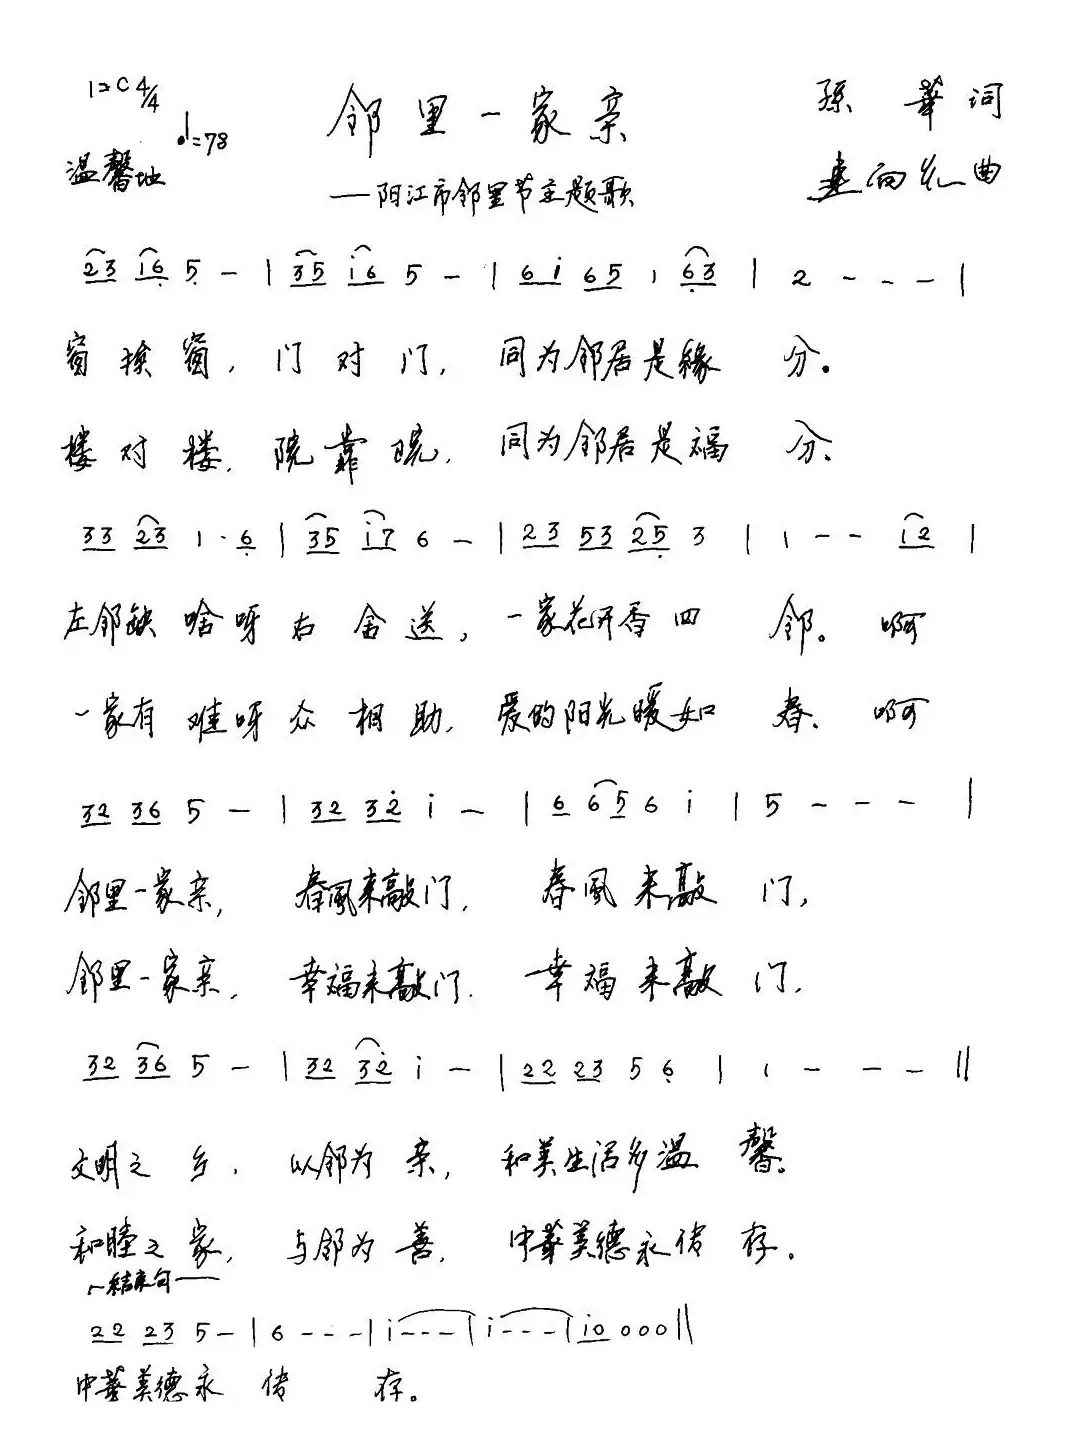 1=C 4/4 邻里一家亲 孙華词
♩=78
温馨地 ——阳江市邻里节主题歌 向 曲
23 16 5 - | 35 i6 5 - | 6i 65 1 63 | 2 - - - |
窗挨窗，门对门，同为邻居是緣分。
楼对楼，院靠院，同为邻居是福分。
33 23 1· 6 | 35 i7 6 - | 23 53 25 3 | 1 - - i2 |
左邻缺啥呀右舍送，一家花开香四邻。啊
一家有难呀众相助，爱的阳光暖如春、啊
32 36 5 - | 32 32 i - | 6 65 6 i | 5 - - - |
邻里一家亲，春風来敲门，春風来敲门，
邻里一家亲，幸福来敲门，幸福来敲门，
32 36 5 - | 32 32 i - | 22 23 5 6 | 1 - - - ||
文明之乡，以邻为亲，和美生活多温馨。
和睦之家，与邻为善，中華美德永传存。
结束句
22 23 5 - | 6 - - - | i - - - | i - - - | i0 0 0 0 ||
中華美德永传存。